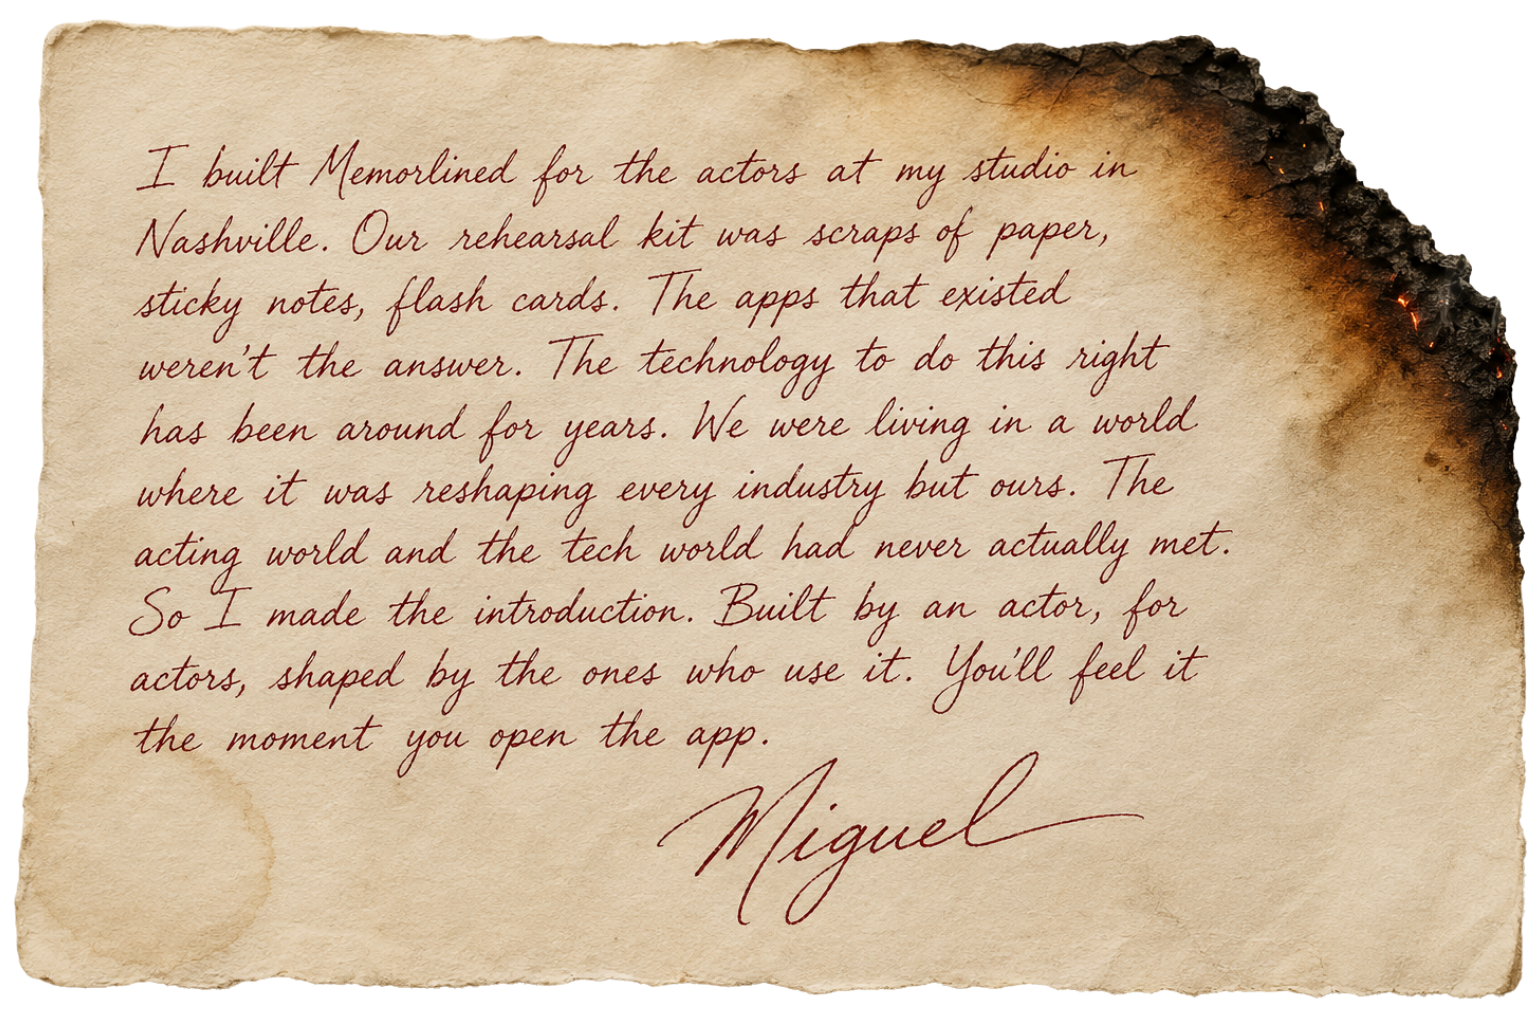 I built Memorlined for the actors at my studio in
Nashville. Our rehearsal kit was scraps of paper,
sticky notes, flash cards. The apps that existed
weren't the answer. The technology to do this right
has been around for years. We were living in a world
where it was reshaping every industry but ours. The
acting world and the tech world had never actually met.
So I made the introduction. Built by an actor, for
actors, shaped by the ones who use it. You'll feel it
the moment you open the app.
Miguel